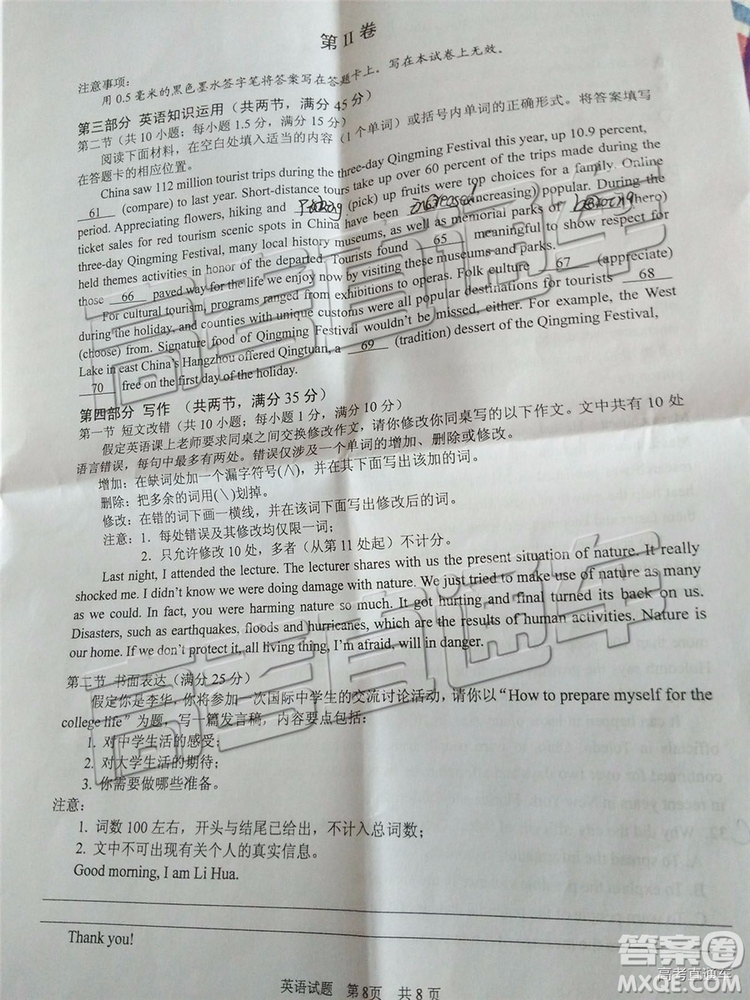 第 II 卷
注意事项：
用 0.5 毫米的黑色墨水签字笔将答案写在答题卡上。写在本试卷上无效。
第三部分 英语知识运用（共两节，满分 45 分）
第二节（共 10 小题；每小题 1.5 分，满分 15 分）
阅读下面材料，在空白处填入适当的内容（1 个单词）或括号内单词的正确形式。将答案填写
在答题卡的相应位置。
China saw 112 million tourist trips during the three-day Qingming Festival this year, up 10.9 percent,
61 (compare) to last year. Short-distance tours take up over 60 percent of the trips made during the
period. Appreciating flowers, hiking and (pick) up fruits were top choices for a family. Online
ticket sales for red tourism scenic spots in China have been increased (increasing) popular. During the
three-day Qingming Festival, many local history museums, as well as memorial parks of (hero)
held themes activities in honor of the departed. Tourists found 65 meaningful to show respect for
those 66 paved way for the life we enjoy now by visiting these museums and parks.
For cultural tourism, programs ranged from exhibitions to operas. Folk culture 67 (appreciate)
during the holiday, and counties with unique customs were all popular destinations for tourists 68
(choose) from. Signature food of Qingming Festival wouldn't be missed, either. For example, the West
Lake in east China's Hangzhou offered Qingtuan, a 69 (tradition) dessert of the Qingming Festival,
70 free on the first day of the holiday.
第四部分 写作 （共两节，满分 35 分）
第一节 短文改错（共 10 小题；每小题 1 分，满分 10 分）
假定英语课上老师要求同桌之间交换修改作文，请你修改你同桌写的以下作文。文中共有 10 处
语言错误，每句中最多有两处。错误仅涉及一个单词的增加、删除或修改。
增加：在缺词处加一个漏字符号(∧)，并在其下面写出该加的词。
删除：把多余的词用(\)划掉。
修改：在错的词下画一横线，并在该词下面写出修改后的词。
注意：1. 每处错误及其修改均仅限一词；
2. 只允许修改 10 处，多者（从第 11 处起）不计分。
Last night, I attended the lecture. The lecturer shares with us the present situation of nature. It really
shocked me. I didn't know we were doing damage with nature. We just tried to make use of nature as many
as we could. In fact, you were harming nature so much. It got hurting and final turned its back on us.
Disasters, such as earthquakes, floods and hurricanes, which are the results of human activities. Nature is
our home. If we don't protect it, all living thing, I'm afraid, will in danger.
第二节 书面表达（满分 25 分）
假定你是李华，你将参加一次国际中学生的交流讨论活动，请你以“How to prepare myself for the
college life”为题，写一篇发言稿，内容要点包括：
1. 对中学生活的感受；
2. 对大学生活的期待；
3. 你需要做哪些准备。
注意：
1. 词数 100 左右，开头与结尾已给出，不计入总词数；
2. 文中不可出现有关个人的真实信息。
Good morning, I am Li Hua.
Thank you!
英语试题 第 8页 共 8 页
高考直通车
答案圈